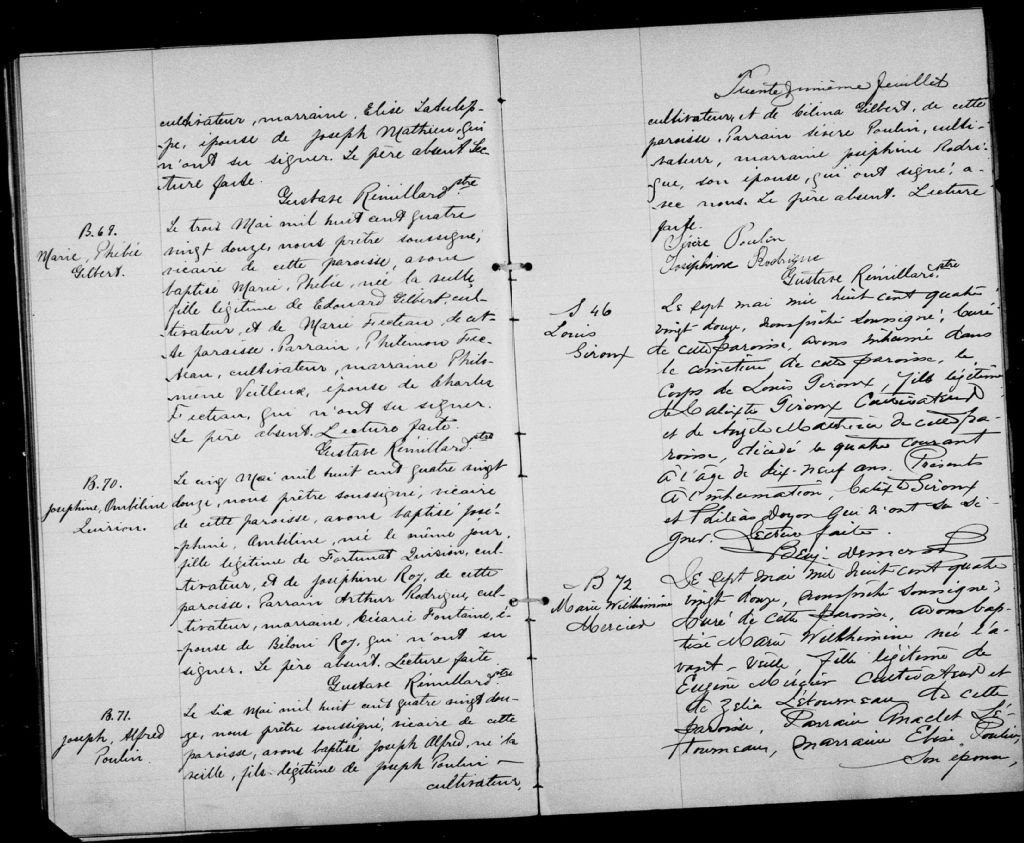 cultivateur, marraine, Elise Latulip-
pe, épouse de Joseph Mathieu, qui
n'ont su signer. Le père absent Lec-
ture faite.
Gustave Rémillard ptre
B. 69.
Marie, Phébée
Gilbert.
Le trois Mai mil huit cent quatre
vingt douze, nous prêtre soussigné,
vicaire de cette paroisse, avons
baptisé Marie, Phébée, née la veille,
fille légitime de Edouard Gilbert, cul-
tivateur, et de Marie Fecteau, de cet-
te paroisse. Parrain, Philemon Fec-
teau, cultivateur, marraine Philo-
mène Veilleux, épouse de Charles
Fecteau, qui n'ont su signer.
Le père absent. Lecture faite.
Gustave Rémillard ptre
B. 70.
Joséphine, Ombéline
Quirion.
Le cinq Mai mil huit cent quatre vingt
douze, nous prêtre soussigné, vicaire
de cette paroisse, avons baptisé José-
phine, Ombéline, née le même jour,
fille légitime de Fortunat Quirion, cul-
tivateur, et de Joséphine Roy, de cette
paroisse. Parrain Arthur Rodrigue, cul-
tivateur, marraine, Césarie Fontaine, é-
pouse de Béloni Roy, qui n'ont su
signer. Le père absent. Lecture faite.
Gustave Rémillard ptre
B. 71.
Joseph, Alfred
Poulin.
Le six Mai mil huit cent quatre vingt dou-
ze, nous prêtre soussigné, vicaire de cette
paroisse, avons baptisé Joseph Alfred, né la
veille, fils légitime de Joseph Poulin
cultivateur,
Trente feuillet
cultivateur, et de Célina Gilbert, de cette
paroisse. Parrain Sévère Poulin, culti-
vateur, marraine Joséphine Rodri-
gue, son épouse, qui ont signé, a-
vec nous. Le père absent. Lecture
faite.
Sévère Poulin
Joséphine Rodrigue
Gustave Rémillard ptre
S 46
Louis
Giroux
Le sept mai mil huit cent quatre
vingt douze, nous prêtre soussigné, Curé
de cette paroisse, avons inhumé dans
le cimetière de cette paroisse, le
Corps de Louis Giroux, fils légitime
de Calixte Giroux Cultivateur
et de Angèle Mathieu de cette pa-
roisse, décédé le quatre courant
à l'âge de dix-neuf ans. Présents
à l'inhumation, Calixte Giroux
et Doyon qui n'ont su si-
gner. Lecture faite.
Benj. Demers ptre
B 72
Marie Wilhimine
Mercier
Le sept mai mil huit cent quatre
vingt-douze, nous prêtre soussigné,
Curé de cette paroisse, avons bap-
tisé Marie Wilhimine née l'a-
vant-veille, fille légitime de
Eugène Mercier Cultivateur et
de Zélia Létourneau de cette
paroisse, Parrain Anaclet Lé-
tourneau, Marraine Elise Poulin,
son épouse,